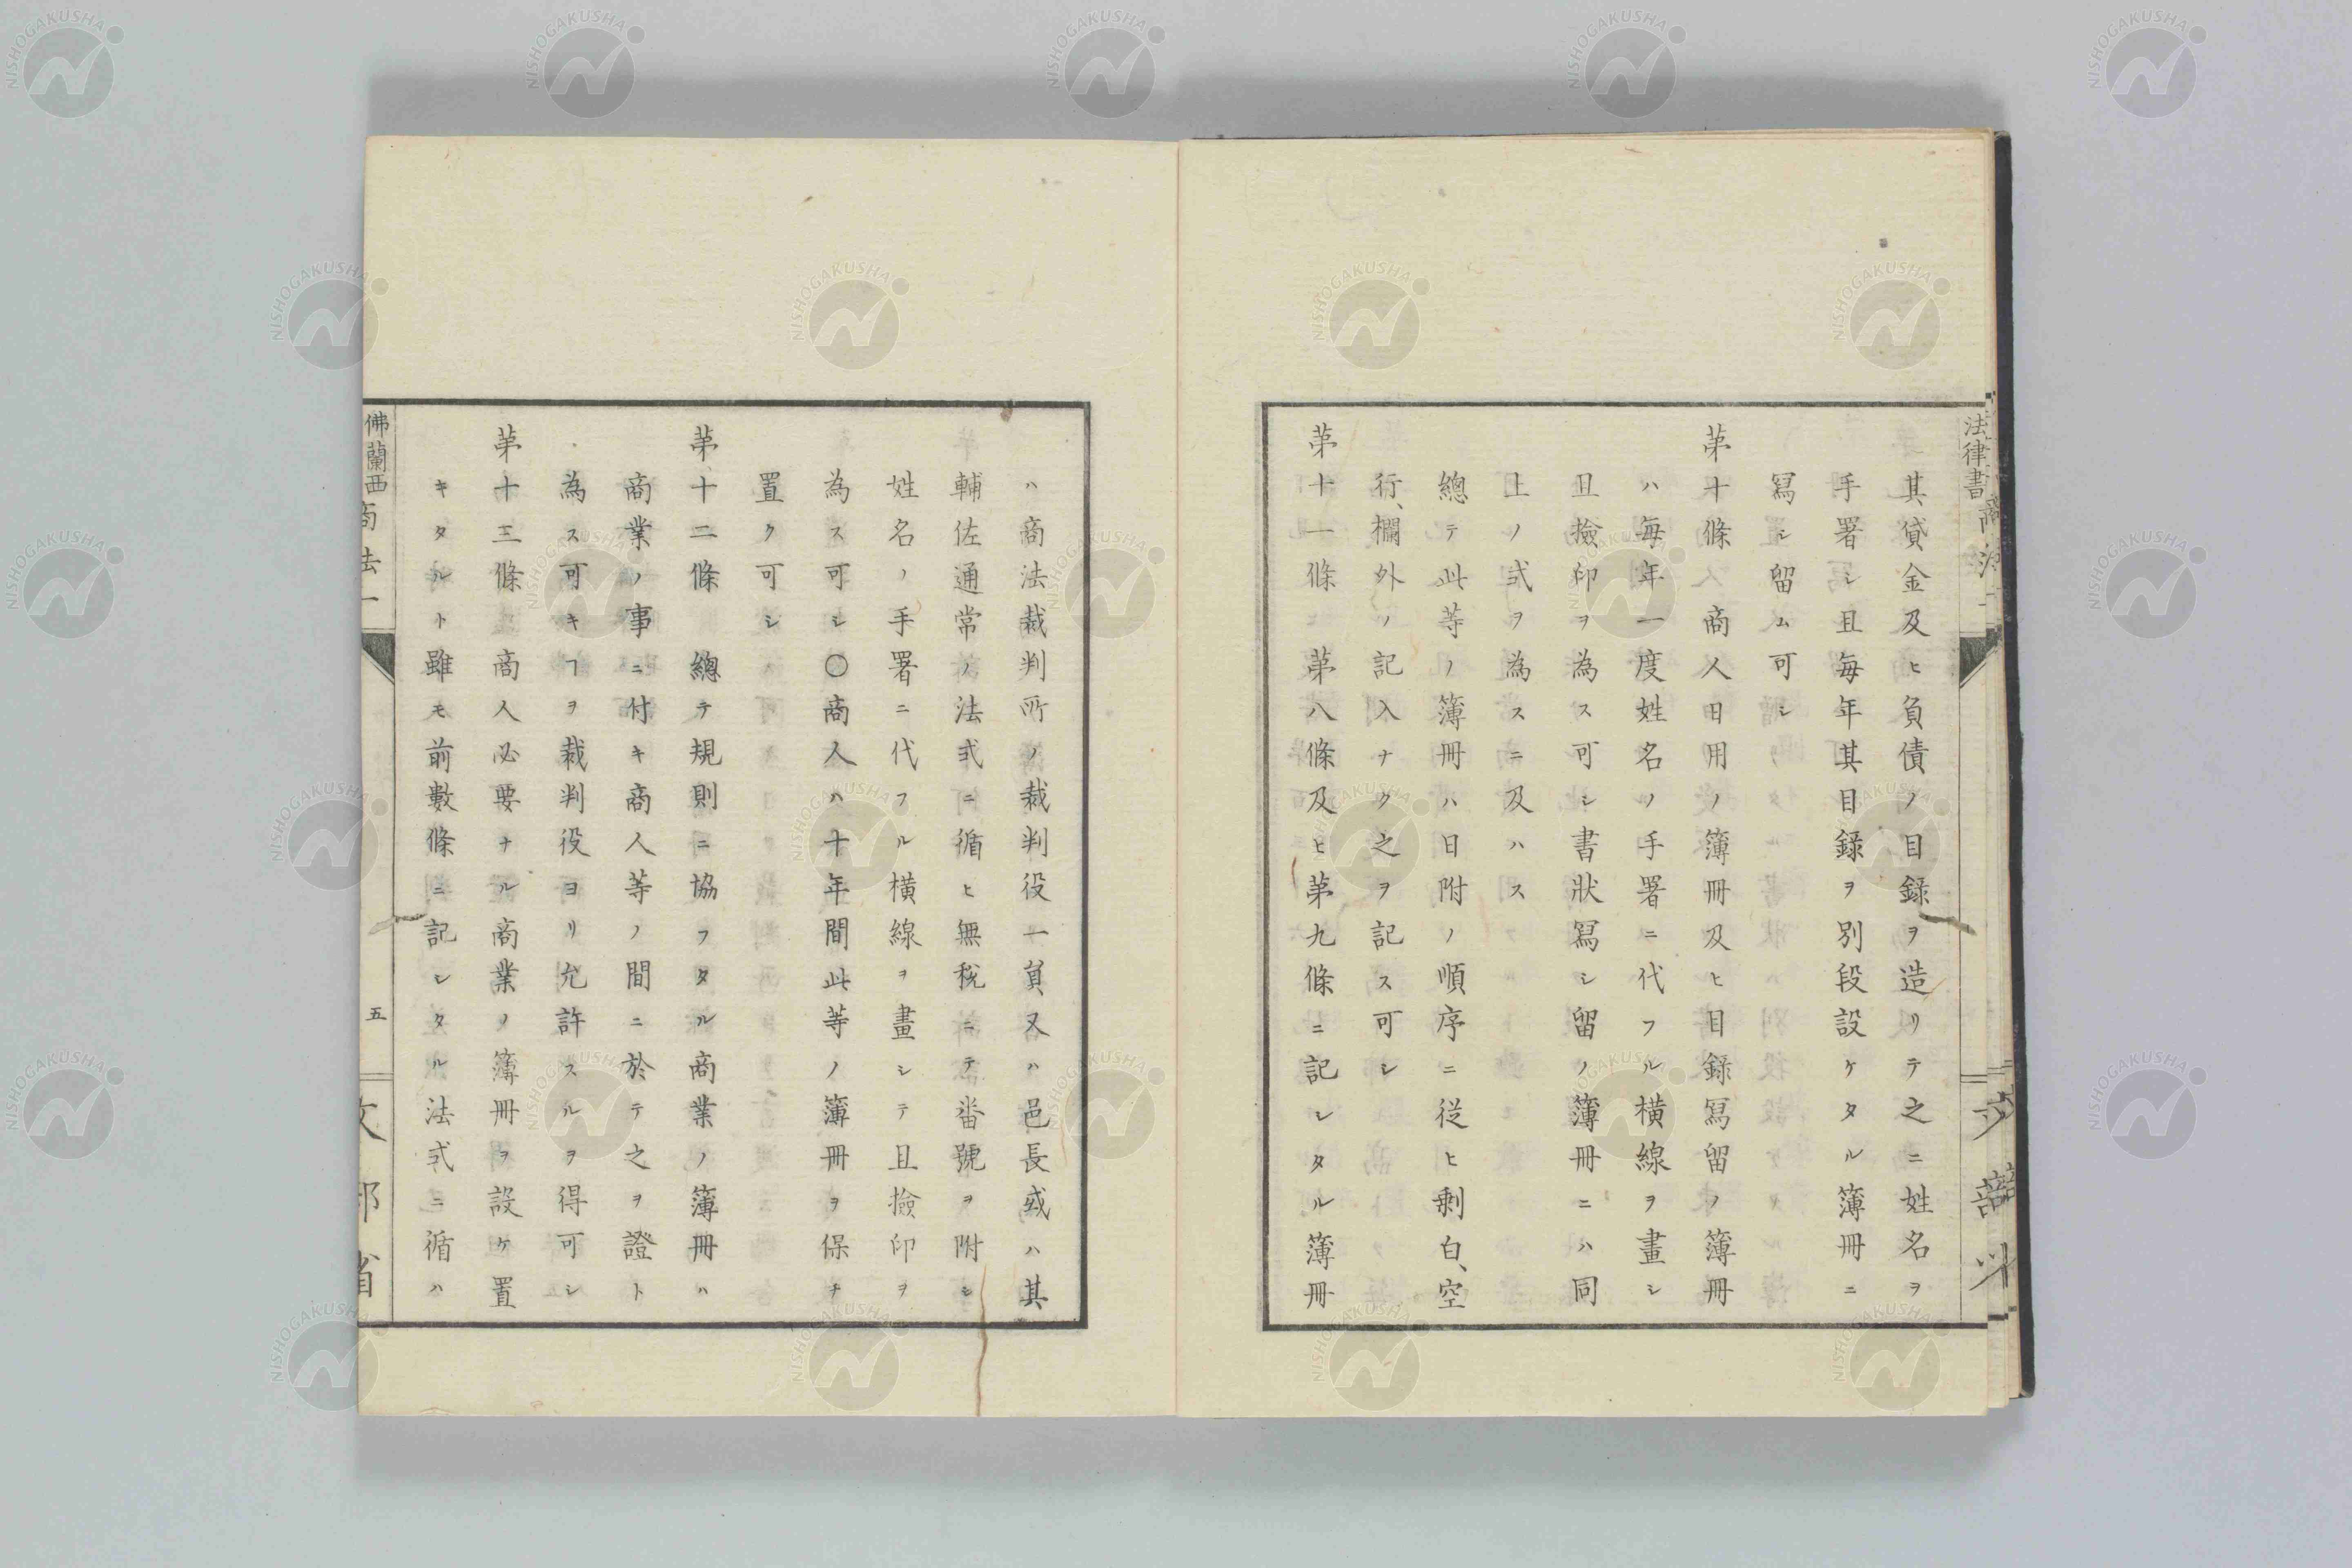 其貸金及ヒ負債ノ目録ヲ造リテ之ニ姓名ヲ
手署シ且毎年其目録ヲ別段設ケタル簿冊ニ
冩シ留ム可シ
苐十條 商人日用ノ簿冊及ヒ目録冩留ノ簿冊
ハ毎年一度姓名ノ手署ニ代フル横線ヲ畫シ
且撿印ヲ為ス可シ書狀冩シ留ノ簿冊ニハ同
上ノ式ヲ為スニ及ハス
總テ此等ノ簿冊ハ日附ノ順序ニ従ヒ剩白、空
行、欄外ノ記入ナク之ヲ記ス可シ
苐十一條 苐八條及ヒ苐九條ニ記シタル簿冊
ハ商法裁判所ノ裁判役一員、又ハ邑長或ハ其
輔佐通常ノ法式ニ循ヒ無税ニテ畨號ヲ附シ
姓名ノ手署ニ代フル横線ヲ畫シテ且撿印ヲ
為ス可シ〇商人ハ十年間此等ノ簿冊ヲ保チ
置ク可シ
苐十二條 總テ規則ニ協フタル商業ノ簿冊ハ
商業ノ事ニ付キ商人等ノ間ニ於テ之ヲ證ト
為ス可キヿヲ裁判役ヨリ允許スルヲ得可シ
苐十三條 商人必要ナル商業ノ簿冊ヲ設ケ置
キタルト雖モ前數條ニ記シタル法式ニ循ハ
佛蘭西商法一
五
文部省
法律書
NISHOGAKUSHA